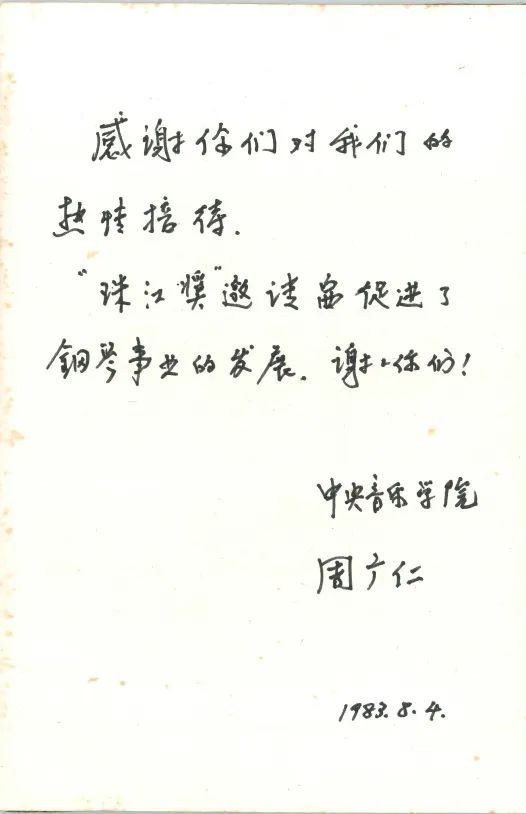 感谢你们对我们的
热情接待.
“珠江奖”邀请赛促进了
钢琴事业的发展. 谢谢你们!
中央音乐学院
周广仁
1983.8.4.